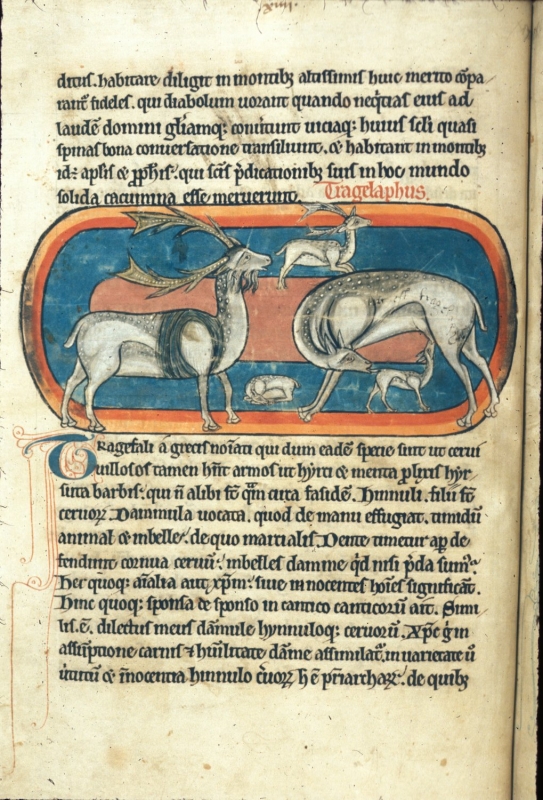 xiiii.
ditus. habitare diligit in montibȝ altissimis huic merito cōpa
rant᷑ fideles. qui diabolum uorant quando neq̇tias eius ad
laudē domini gl̄iamq; conu̇tunt uiciaq; huius sc̄li quasi
spinas bona conuersatione transiliunt. ⁊ habitant in montibȝ
id: apl̄is ⁊ ꝓph̄is. qui sc̄is p̄dicationibȝ suis in hoc mundo
solida cacumina esse meruerunt. Tragelaphus.
Tragefali a grecis noīati qui dum eadē specie sint ut cerui
uillosos tamen hn̄t armos ut hyrci ⁊ menta ꝓlixis hyr
suta barbis. qui n̄ alibi st̄ q̄m circa fasidē. Hinnuli. filii st̄
ceruoꝝ Dammula uocata. quod de manu effugiat. timidū
animal ⁊ imbelle. de quo martialis Dente timetur ap̄. de
fendunt cornua ceruū. imbelles damme qd̄ nisi p̄da sumꝰ
Hec quoq; aīalia aut xp̄m. siue innocentes hoīes significāt.
Hinc quoq; sponsa de sponso in cantico canticorū ait. Simi
lis. ē. dilectus meus dāmule hynnuloq; ceruorū. Xp̄c ġ in
assūptione carnis ⁊ hūilitate dāme assimilat᷑. in uarietate ū
u̇tutū ⁊ īnocentia hinnulo c̄uoꝝ h̄ ē pr̄iarchaꝝ. de quibȝ